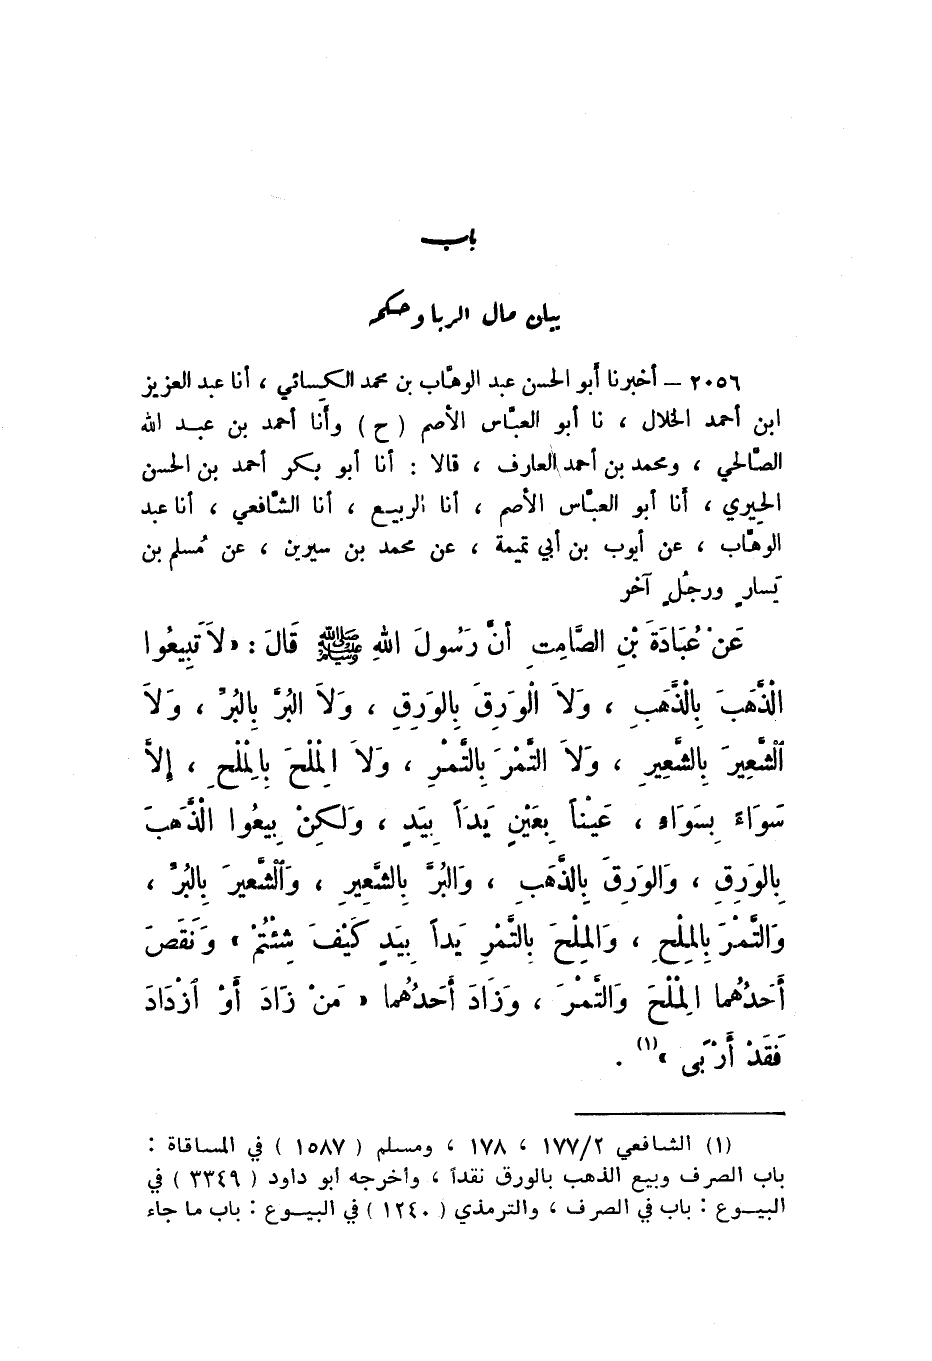 باب
بيان مال الربا وحكمه
٢٠٥٦ – أخبرنا أبو الحسن عبد الوهّاب بن محمد الكِسائي ، أنا عبد العزيز
ابن أحمد الخلال ، نا أبو العبّاس الأصم ( ح ) وأَنا أحمد بن عبد الله
الصّالحي ، ومحمد بن أحمد العارف ، قالا : أنا أبو بكر أحمد بن الحسن
الحِيري ، أَنا أبو العبّاس الأصم ، أنا الربيع ، أنا الشّافعي ، أنا عبد
الوهّاب ، عن أيوب بن أبي تميمة ، عن محمد بن سيرين ، عن مُسلم بن
يَسارٍ ورجُلٍ آخر
عَنْ عُبَادَةَ بْنِ الصَّامِتِ أَنَّ رَسُولَ اللهِ ﷺ قَالَ : « لاَ تَبِيعُوا
الْذَّهَبَ بِالْذَّهَبِ ، وَلاَ الْوَرِقَ بِالوَرِقِ ، وَلاَ البُرَّ بِالبُرِّ ، وَلاَ
ٱلشَّعِيرَ بِالشَّعِيرِ ، وَلاَ التَّمْرَ بِالتَّمْرِ ، وَلاَ المِلْحَ بِالمِلْحِ ، إِلاَّ
سَوَاءً بِسَوَاءٍ ، عَيْنَاً بِعَيْنٍ يَدَاً بِيَدٍ ، وَلَكِنْ بِيعُوا الْذَّهَبَ
بِالوَرِقِ ، وَالوَرِقَ بِالذَّهَبِ ، وَالبُرَّ بِالشَّعِيرِ ، وَٱلشَّعِيرَ بِالبُرِّ ،
وَالتَّمْرَ بِالمِلْحِ ، وَالمِلْحَ بِالتَّمْرِ يَداً بِيَدٍ كَيْفَ شِئْتُمْ » وَنَقَصَ
أَحَدُهُما المِلْحَ وَالتَّمْرَ ، وَزَادَ أَحَدُهُما « مَنْ زَادَ أَوْ ٱزْدَادَ
فَقَدْ أَرْبَى »(١) .
(١) الشافعي ١٧٧/٢ ، ١٧٨ ، ومسلم ( ١٥٨٧ ) في المساقاة :
باب الصرف وبيع الذهب بالورق نقداً ، وأخرجه أبو داود ( ٣٣٤٩ ) في
البيوع : باب في الصرف ، والترمذي ( ١٢٤٠ ) في البيوع : باب ما جاء